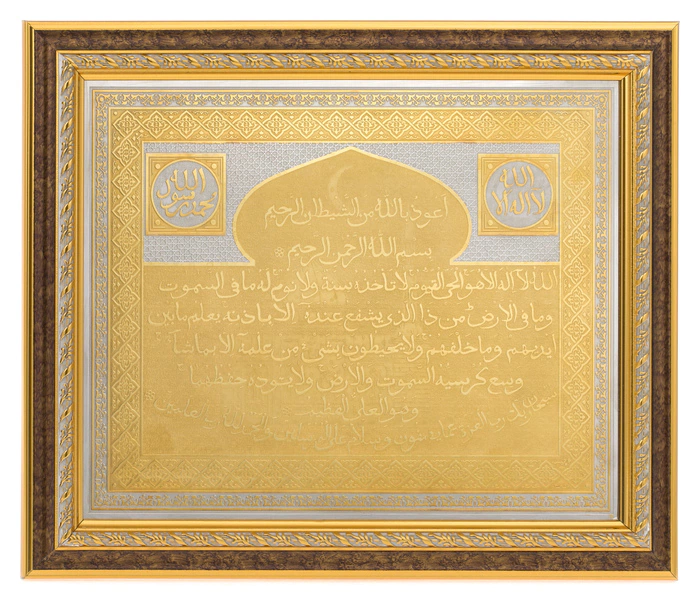 لا اله الا الله
محمد رسول الله
أعوذ بالله من الشيطان الرجيم
بسم الله الرحمن الرحيم
الله لا اله الا هو الحي القيوم لا تأخذه سنة ولا نوم له ما في السموت
وما في الارض من ذا الذي يشفع عنده الا باذنه يعلم ما بين
ايديهم وما خلفهم ولا يحيطون بشيء من علمه الا بما شاء
وسع كرسيه السموت والارض ولا يئوده حفظهما
وهو العلي العظيم
سبحان ربك رب العزة عما يصفون وسلام على المرسلين والحمد لله رب العالمين